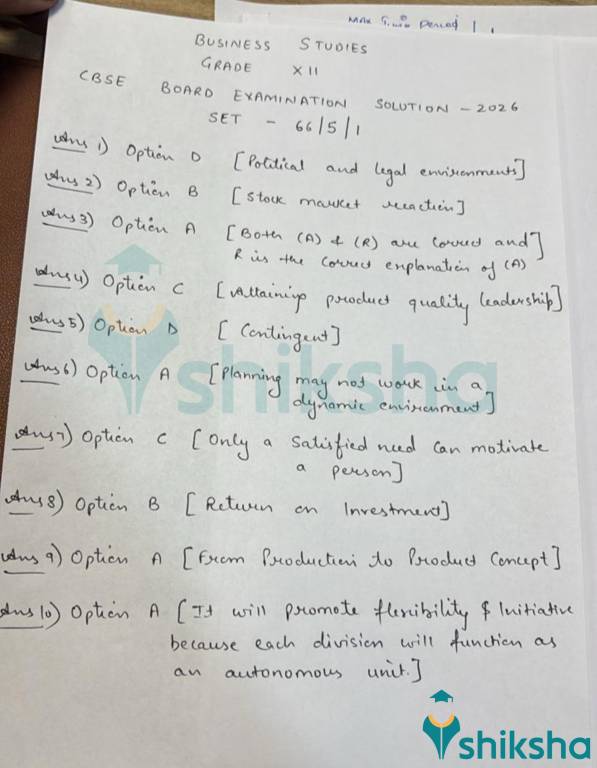 Max Time Period 1
BUSINESS STUDIES
GRADE XII
CBSE BOARD EXAMINATION SOLUTION - 2026
SET - 66/5/1
Ans 1) Option D [Political and legal environments]
Ans 2) Option B [Stock market reaction]
Ans 3) Option A [Both (A) & (R) are correct and]
R is the correct explanation of (A)
Ans 4) Option C [Attaining product quality leadership]
Ans 5) Option D [Contingent]
Ans 6) Option A [Planning may not work in a
dynamic environment]
Ans 7) Option C [Only a satisfied need can motivate
a person]
Ans 8) Option B [Return on Investment]
Ans 9) Option A [From Production to Product Concept]
Ans 10) Option A [It will promote flexibility & Initiative
because each division will function as
an autonomous unit.]
shiksha
shiksha